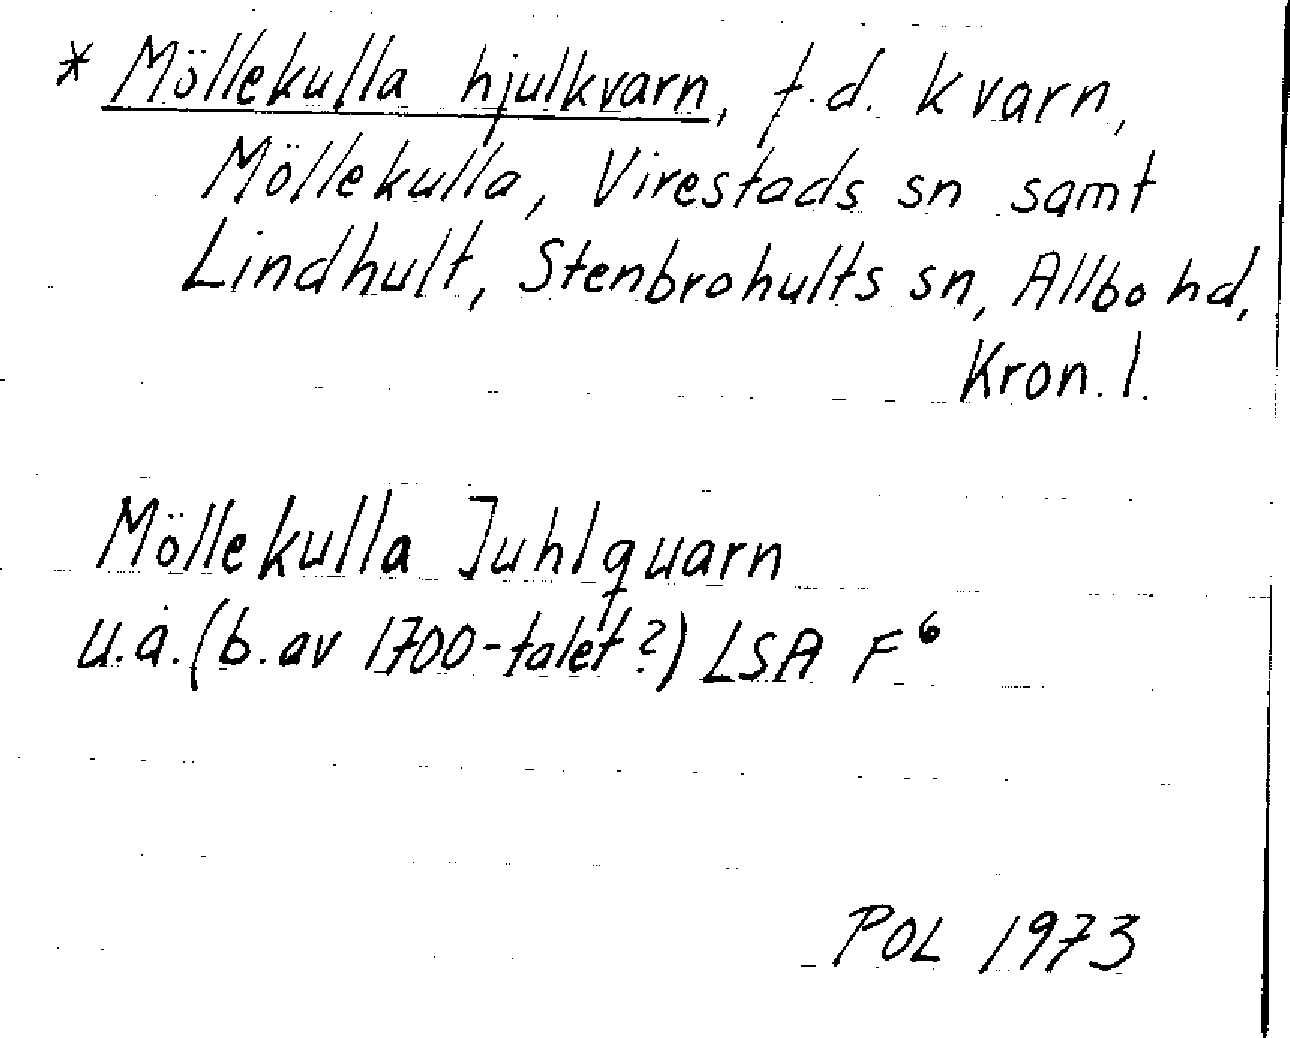 * Möllekulla hjulkvarn, f.d. kvarn,
Möllekulla, Virestads sn samt
Lindhult, Stenbrohults sn, Allbo hd,
Kron. l.
Möllekulla Juhlquarn
u.å. (b. av 1700-talet?) LSA F⁶
POL 1973